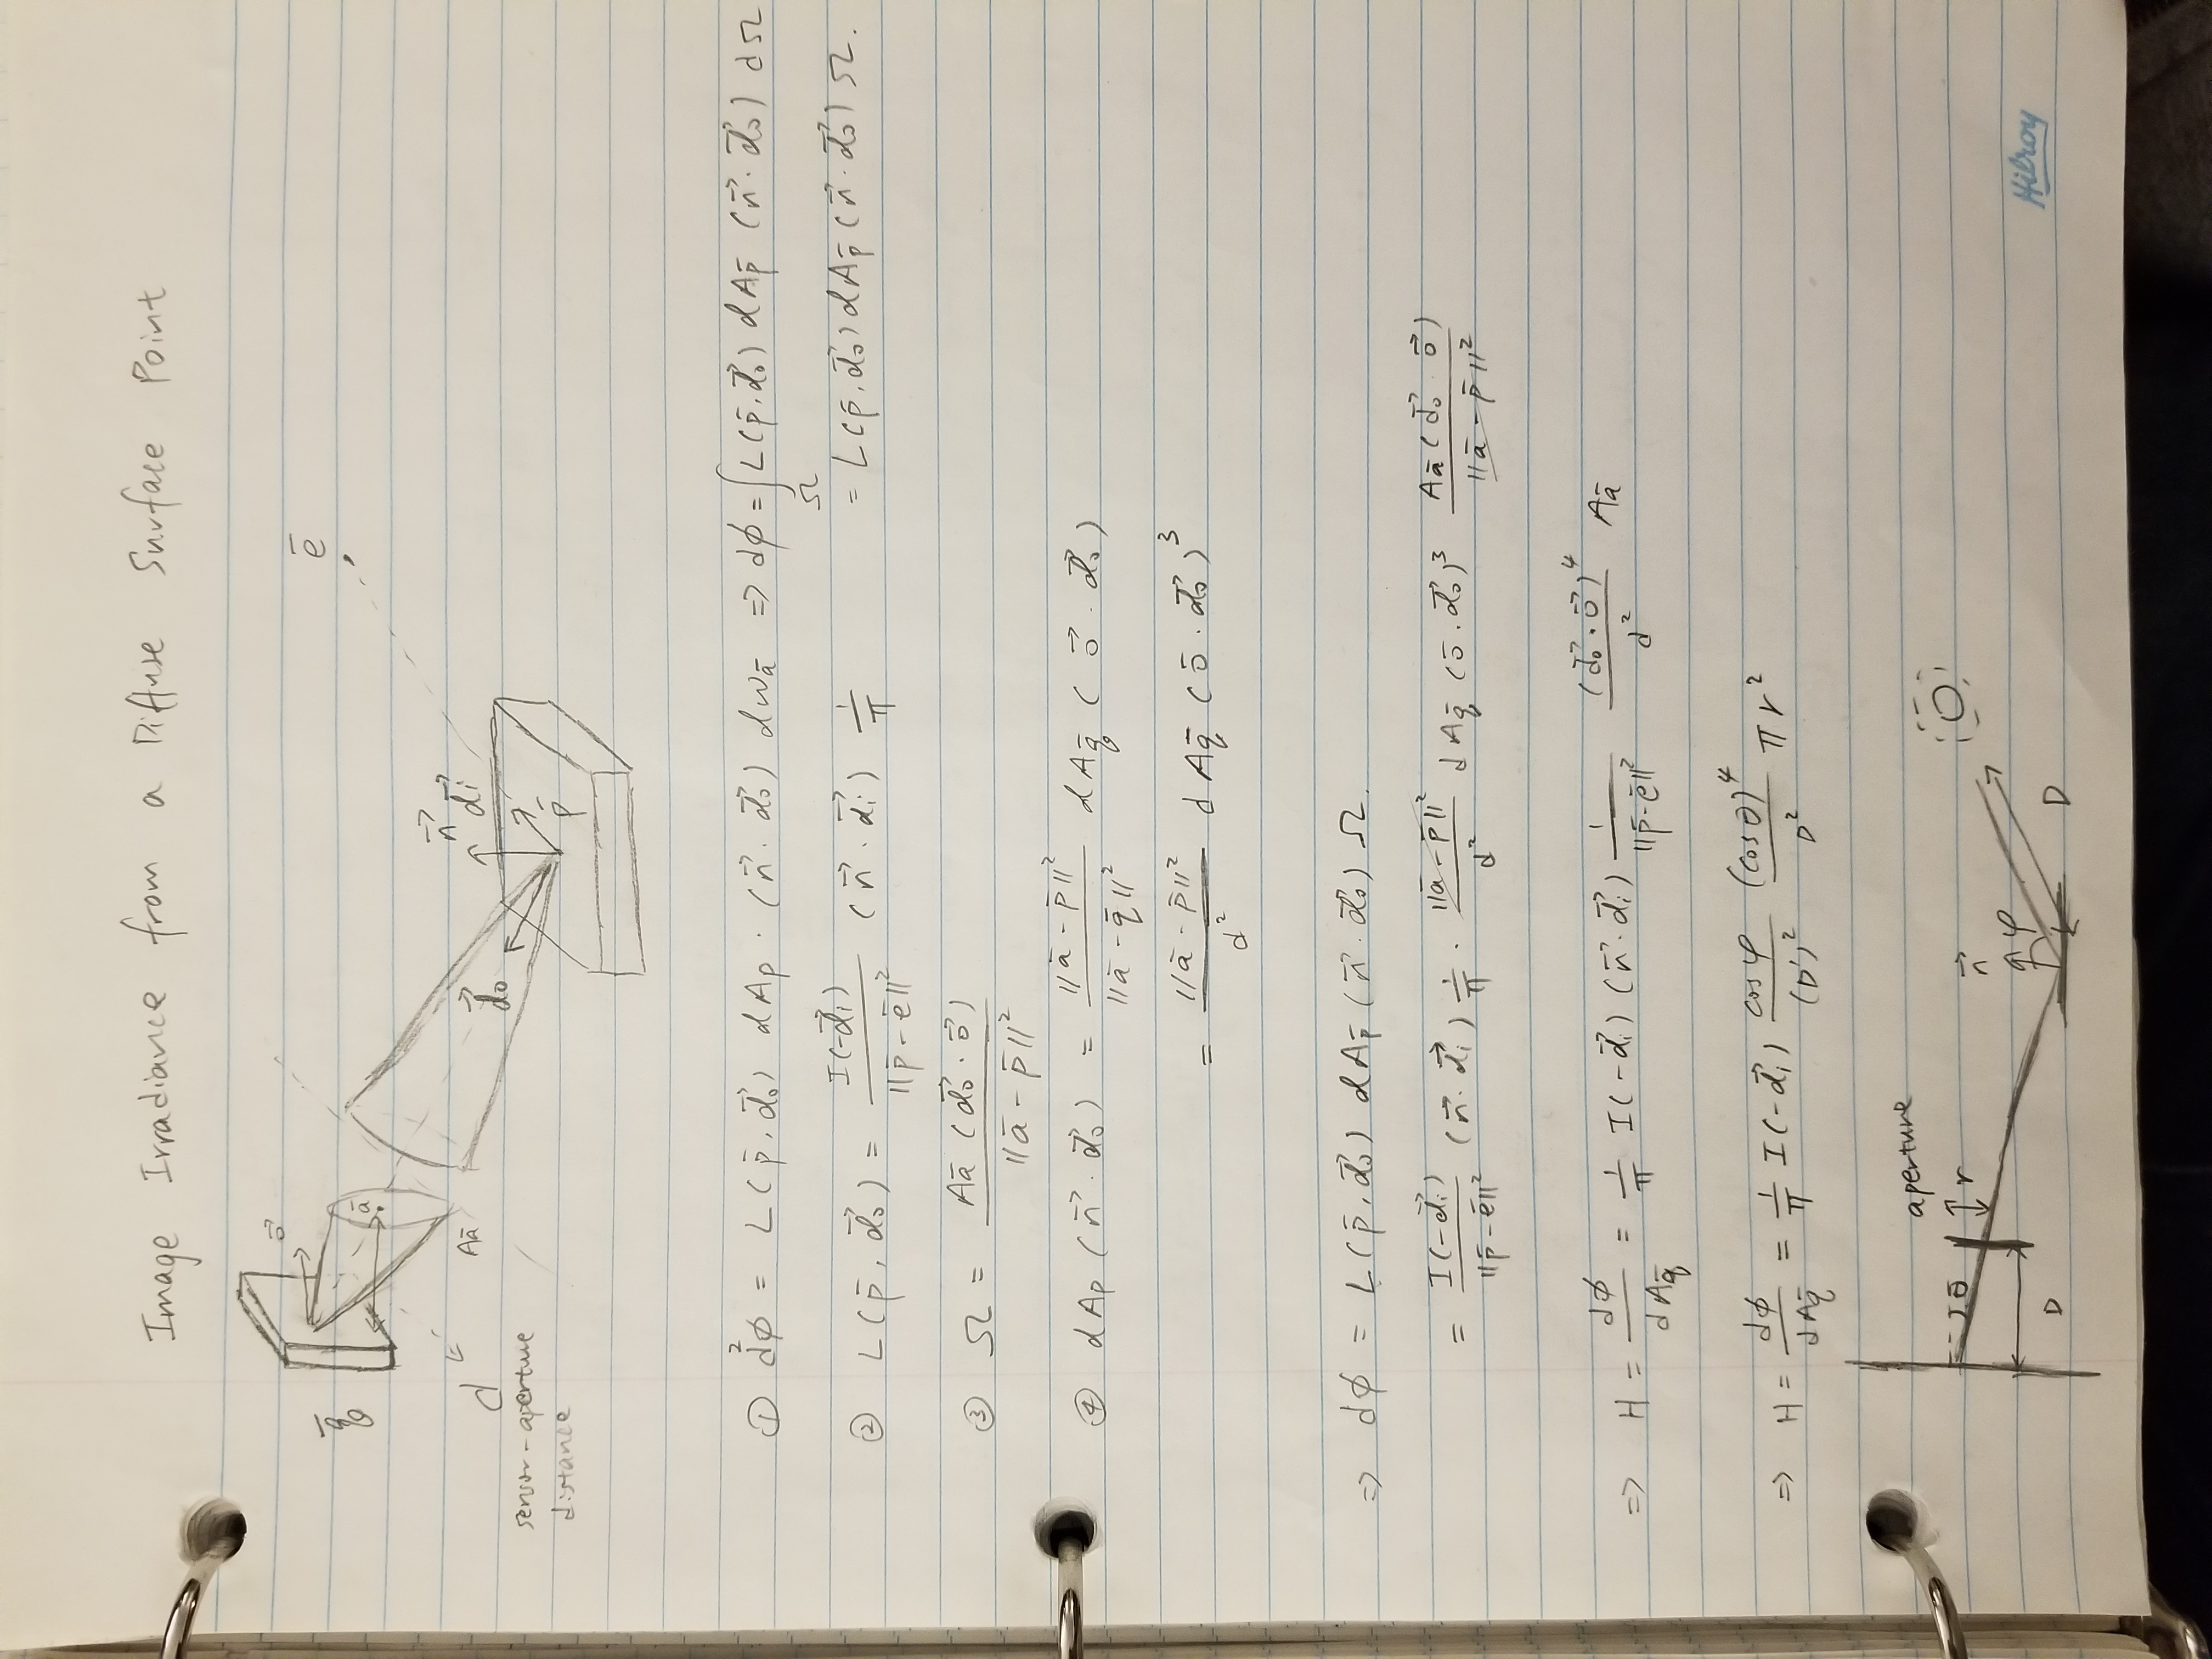 Image Irradiance from a Diffuse Surface Point
o⃗
q̄
ā
ē
d
Aā
sensor-aperture
distance
d⃗o
n⃗
d⃗i
p̄
① d²ϕ = L(p̄, d⃗o) dAp · (n⃗ · d⃗o) dwā ⇒ dϕ = ∫Ω L(p̄, d⃗o) dAp̄ (n⃗ · d⃗o) dΩ
= L(p̄, d⃗o) dAp̄ (n⃗ · d⃗o) Ω.
② L(p̄, d⃗o) = I(-d⃗i) / ||p̄ - ē||² (n⃗ · d⃗i) 1/π
③ Ω = Aā (d⃗o · o⃗) / ||ā - p̄||²
④ dAp (n⃗ · d⃗o) = ||ā - p̄||² / ||ā - q̄||² dAq̄ (o⃗ · d⃗o)
= ||ā - p̄||² / d² dAq̄ (ō · d⃗o)³
⇒ dϕ = L(p̄, d⃗o) dAp̄ (n⃗ · d⃗o) Ω.
= I(-d⃗i) / ||p̄ - ē||² (n⃗ · d⃗i) 1/π · ||ā - p̄||² / d² dAq̄ (ō · d⃗o)³ Aā (d⃗o · o⃗) / ||ā - p̄||²
⇒ H = dϕ / dAq̄ = 1/π I(-d⃗i) (n⃗ · d⃗i) 1 / ||p̄ - ē||² (d⃗o · o⃗)⁴ / d² Aā
⇒ H = dϕ / dAq̄ = 1/π I(-d⃗i) cosφ / (D')² (cosθ)⁴ / D² πr²
aperture
θ
r
n⃗
φ
D
D
Hilroy